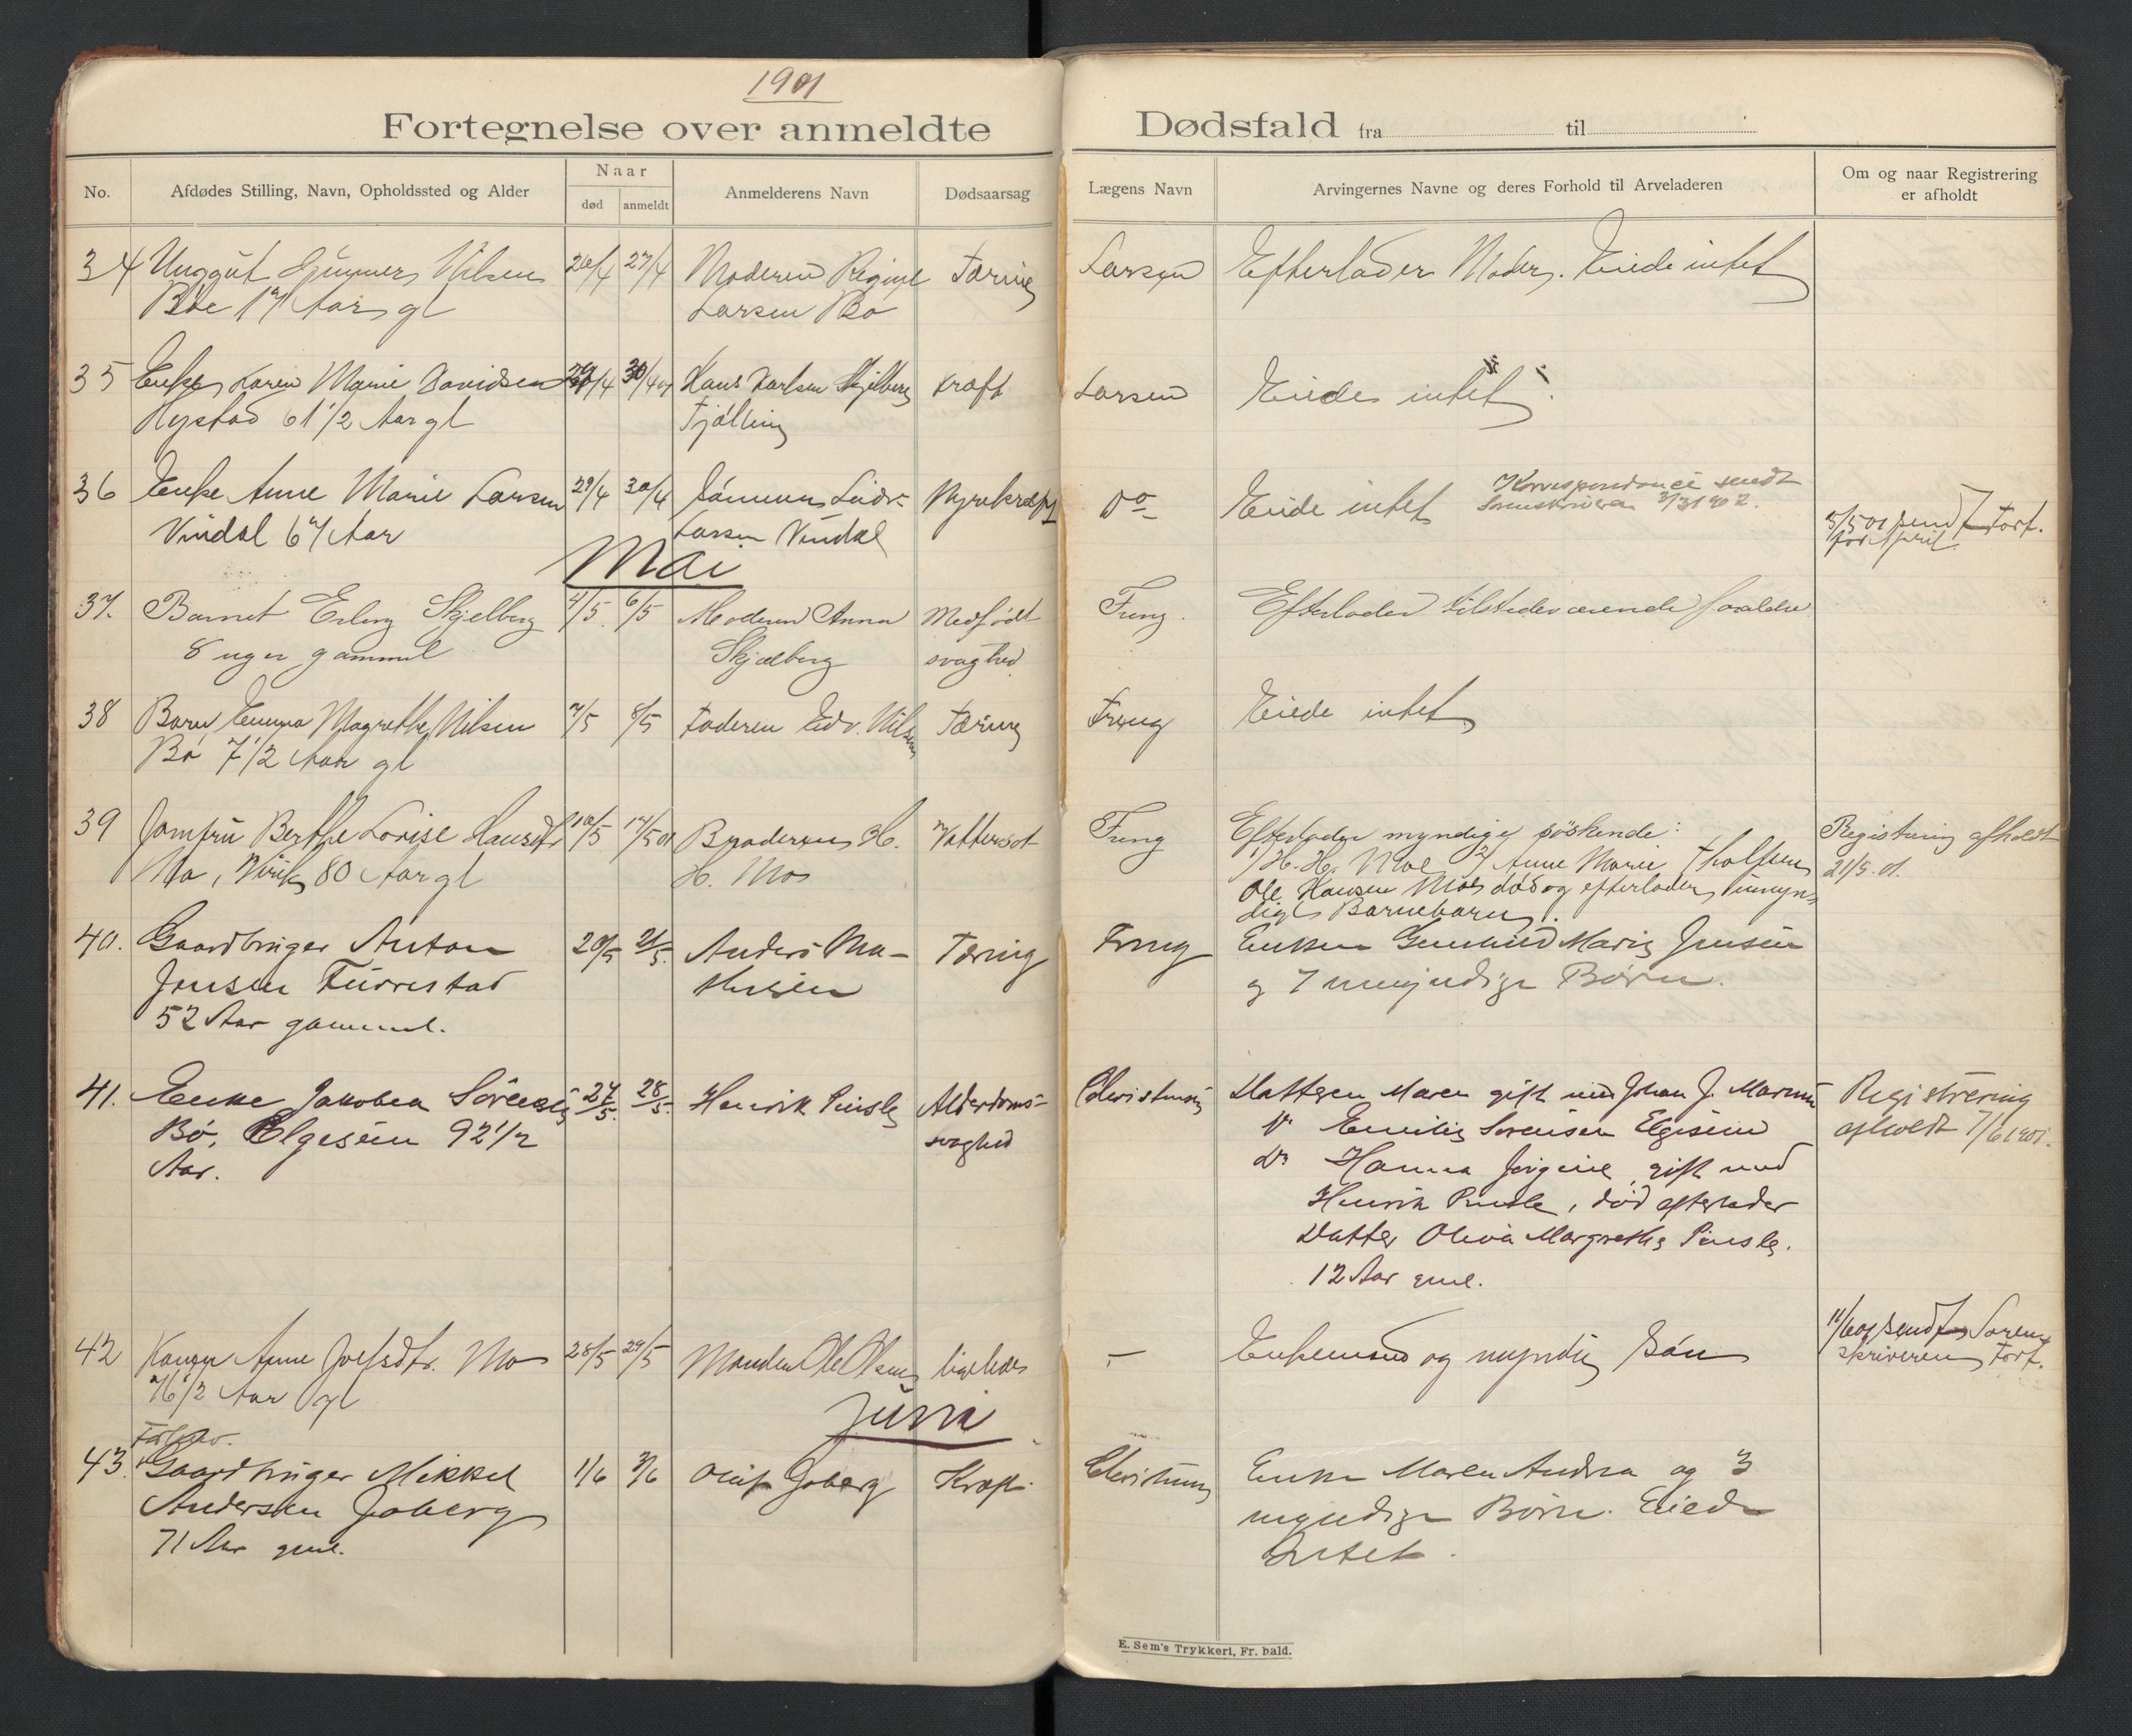 1901
Fortegnelse over anmeldte Dødsfald fra til
No. Afdødes Stilling, Navn, Opholdssted og Alder Naar død anmeldt Anmelderens Navn Dødsaarsag Lægens Navn Arvingernes Navne og deres Forhold til Arveladeren Om og naar Registrering er afholdt
34 Unggut Gunner Nilsen 20/4 27/4 Moderen Regine Tæring Larsen Efterlader Moder. Eiede intet
Bøe 17 Aar gl Larsen Bø
35 Enke Karen Marie Davidsen 30/4 01 Hans Karlsen Skjelberg Kræft Larsen Eiede intet
Nystad 61 1/2 Aar gl Tjølling
36 Enke Anne Marie Larsen 29/4 30/4 Ludv. Do Eiede intet Korrespondance sendt
Sorenskriveren 3/3 1902.
Vindal 67 Aar Larsen Vindal 3/5 01 sendt Fort.
for April
Mai
37. Barnet Erling Skjelberg 4/5. 6/5 Moderen Anna Medfødt Freng. Efterlader tilstedeværende forældre
8 uger gammel Skjælberg svaghed
38 Barn Emma Magrethe Nilsen 7/5 8/5 Faderen Edv. Nilsen Tæring Freng Eiede intet
Bø 7 1/2 Aar gl
39 Jomfru Berthe Lovise Hansdtr 10/5 17/5 01 Broderen H. Vattersot Freng Efterlader myndige søskende: Registrering afholdt
Mo, Virik 80 Aar gl H. Mo 1/ H. H. Moe 2/ Anne Marie 21/5. 01
Ole Hansen Moe død og efterlader umyn-
digt Barnebarn.
40. Gaardbruger Anton 20/5 21/5. Anders Ma- Tæring Freng Enken Gunhild Marie Jensen
Jensen Furrestad thisen og 7 umyndige Børn.
52 Aar gammel.
41. Enke Jakobea Sörensen 27/5. 28/5. Henrik Pinsle Alderdoms- Christensen Datteren Maren gift med Johan J. Registrering
Bö, Elgesem 92 1/2 svaghed Do Emilie Sørensen Elgesem afholdt 7/6 1901.
Aar. Do Hanna Jørgine gift med
Henrik Pinsle, død efterlader
Datter Olivia Margrethe Pinsle.
12 Aar gml.
42 Konen Anne Joelsdtr. Mo 28/5 29/5 Manden Ole Olsen ligeledes — Enkemand og myndig Søn 11/6 01 sendt Soren-
skriveren Fort.
76 1/2 Aar gl
Juni
43. Gaardbruger Mikkel 1/6 3/6 Oluf Joberg Kræft. Christensen Enke Maren Andrea og 3
Andersen Joberg myndige Børn. Eiede
71 Aar gml. Intet.
E. Sem's Trykkeri, Fr. hald.